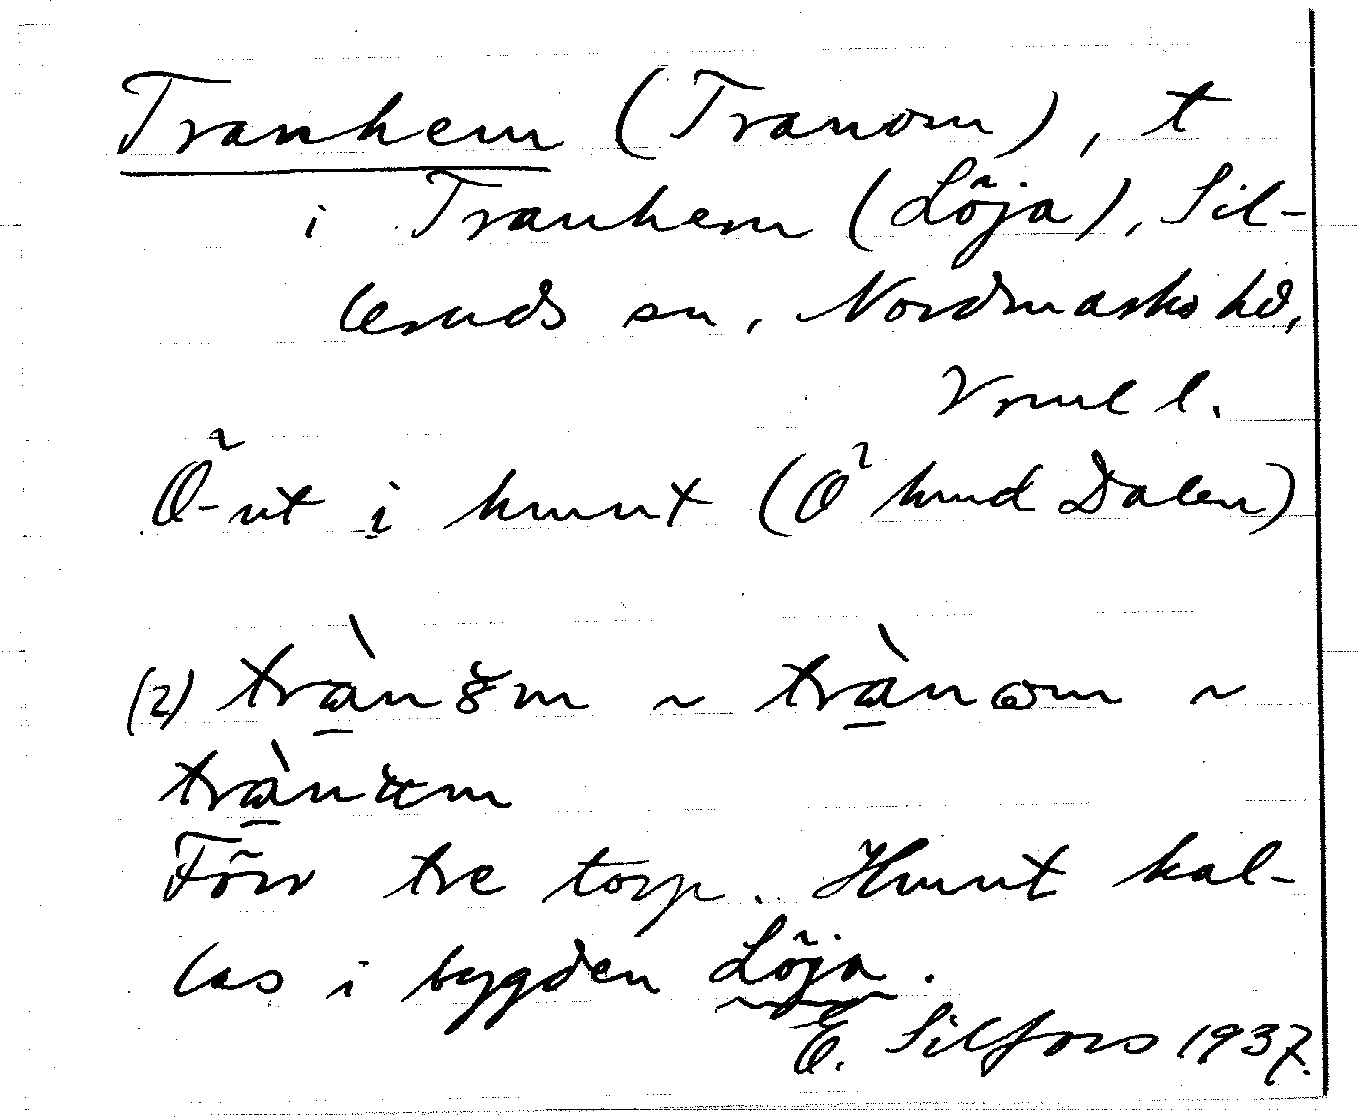 Tranhem (Tranom), t
i Tranhem (Löja), Sil-
leruds sn, Nordmarks hd,
Vrml l.
Ö-ut i hmnt (Ö hmd Dalen)
(2) tràn
För tre torp. Hmnt kal-
las i bygden Löja.
E. Silfors 1937.